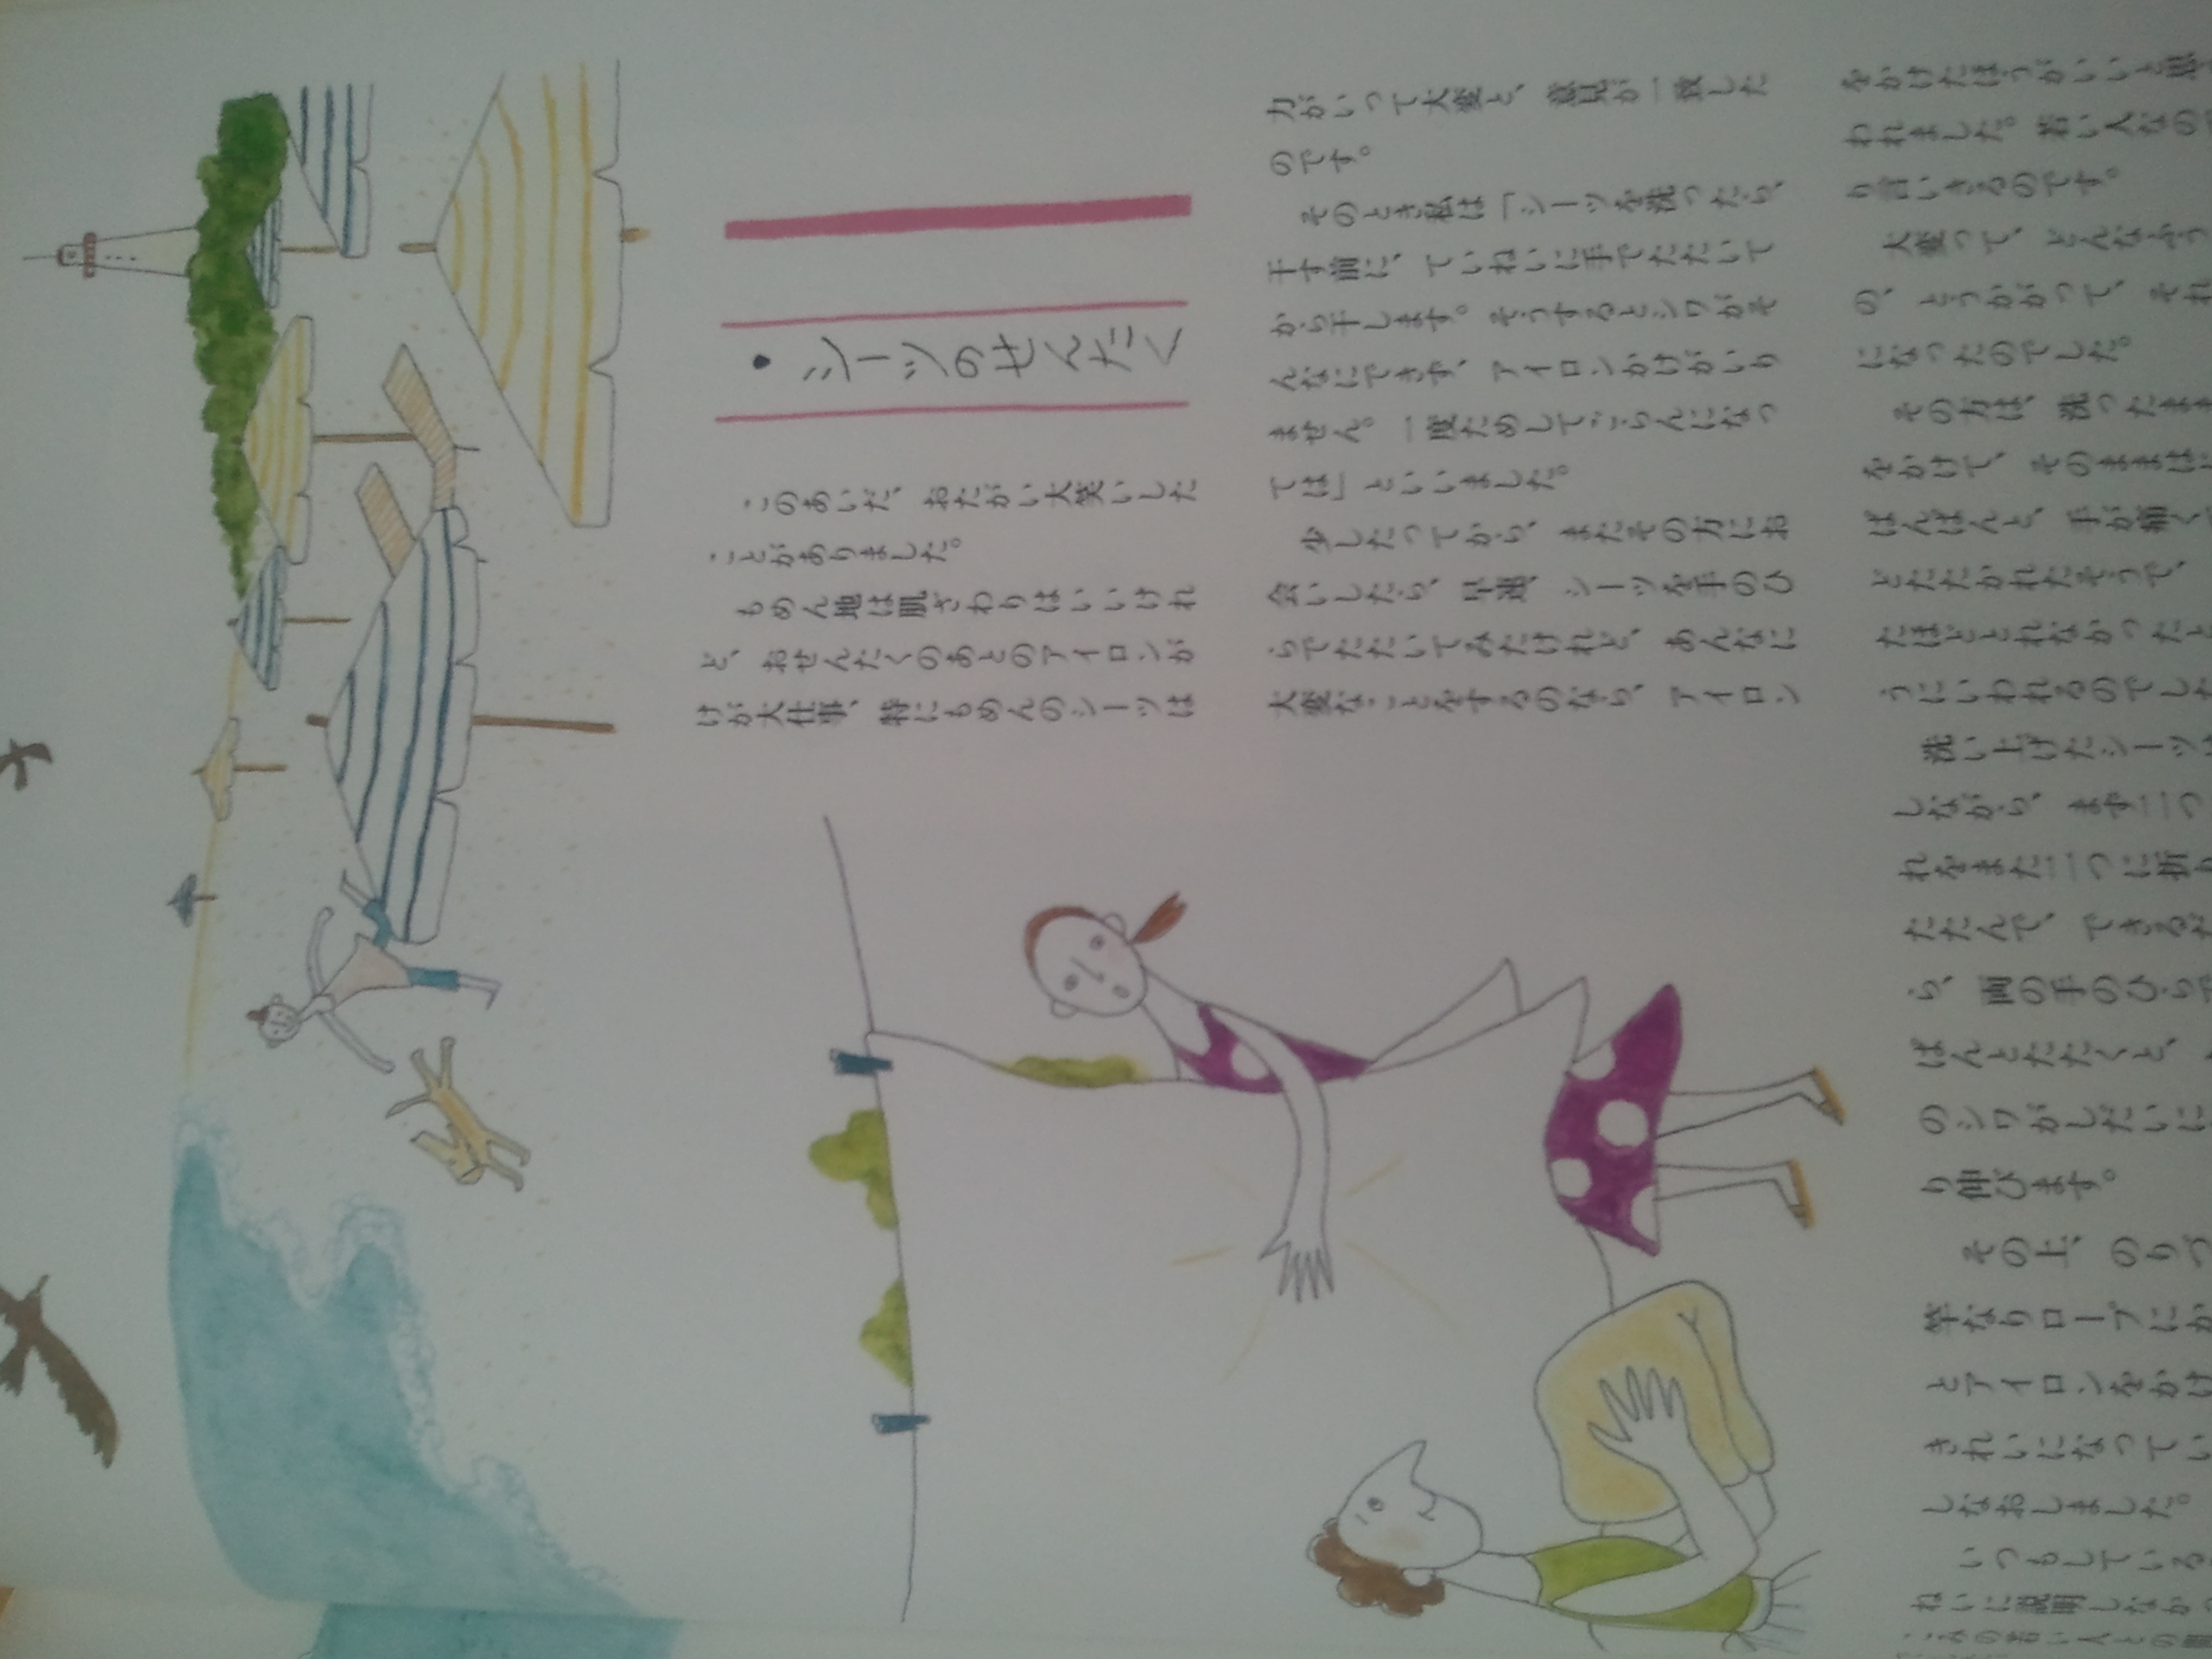 ・シーツのせんだく
このあいだ、おたがい大笑いした
ことがありました。
もめん地は肌ざわりはいいけれ
ど、おせんたくのあとのアイロンが
けが大仕事、特にもめんのシーツは
力がいって大変と、意見が一致した
のです。
そのとき私は「シーツを洗ったら、
干す前に、ていねいに手でたたいて
から干します。そうするとシワがそ
んなにできず、アイロンかけがいり
ません。一度ためしてごらんになっ
ては」といいました。
少したってから、またその方にお
会いしたら、早速、シーツを手のひ
らでたたいてみたけれど、あんなに
大変なことをするのなら、アイロン
をかけたほうがいいと思
われました。若い人なので
り言いきるのです。
大変って、どんなふう
の、とうかがって、それ
になったのでした。
その方は、洗ったまま
をかけて、そのままは
ぱんぱんと、手が痛く
どたたかれたそうで、
たほどとれなかったと
うにいわれるのでした
洗い上げたシーツは
しながら、まず二つ
れをまた二つに折り
たたんで、できるだ
ら、両の手のひらで
ぱんとたたくと、
のシワがしだいに
り伸びます。
その上、のりづ
竿なりロープにか
とアイロンをかけ
きれいになってい
しなおしました。
いつもしている
ねいに説明しなかっ
の若い人との間